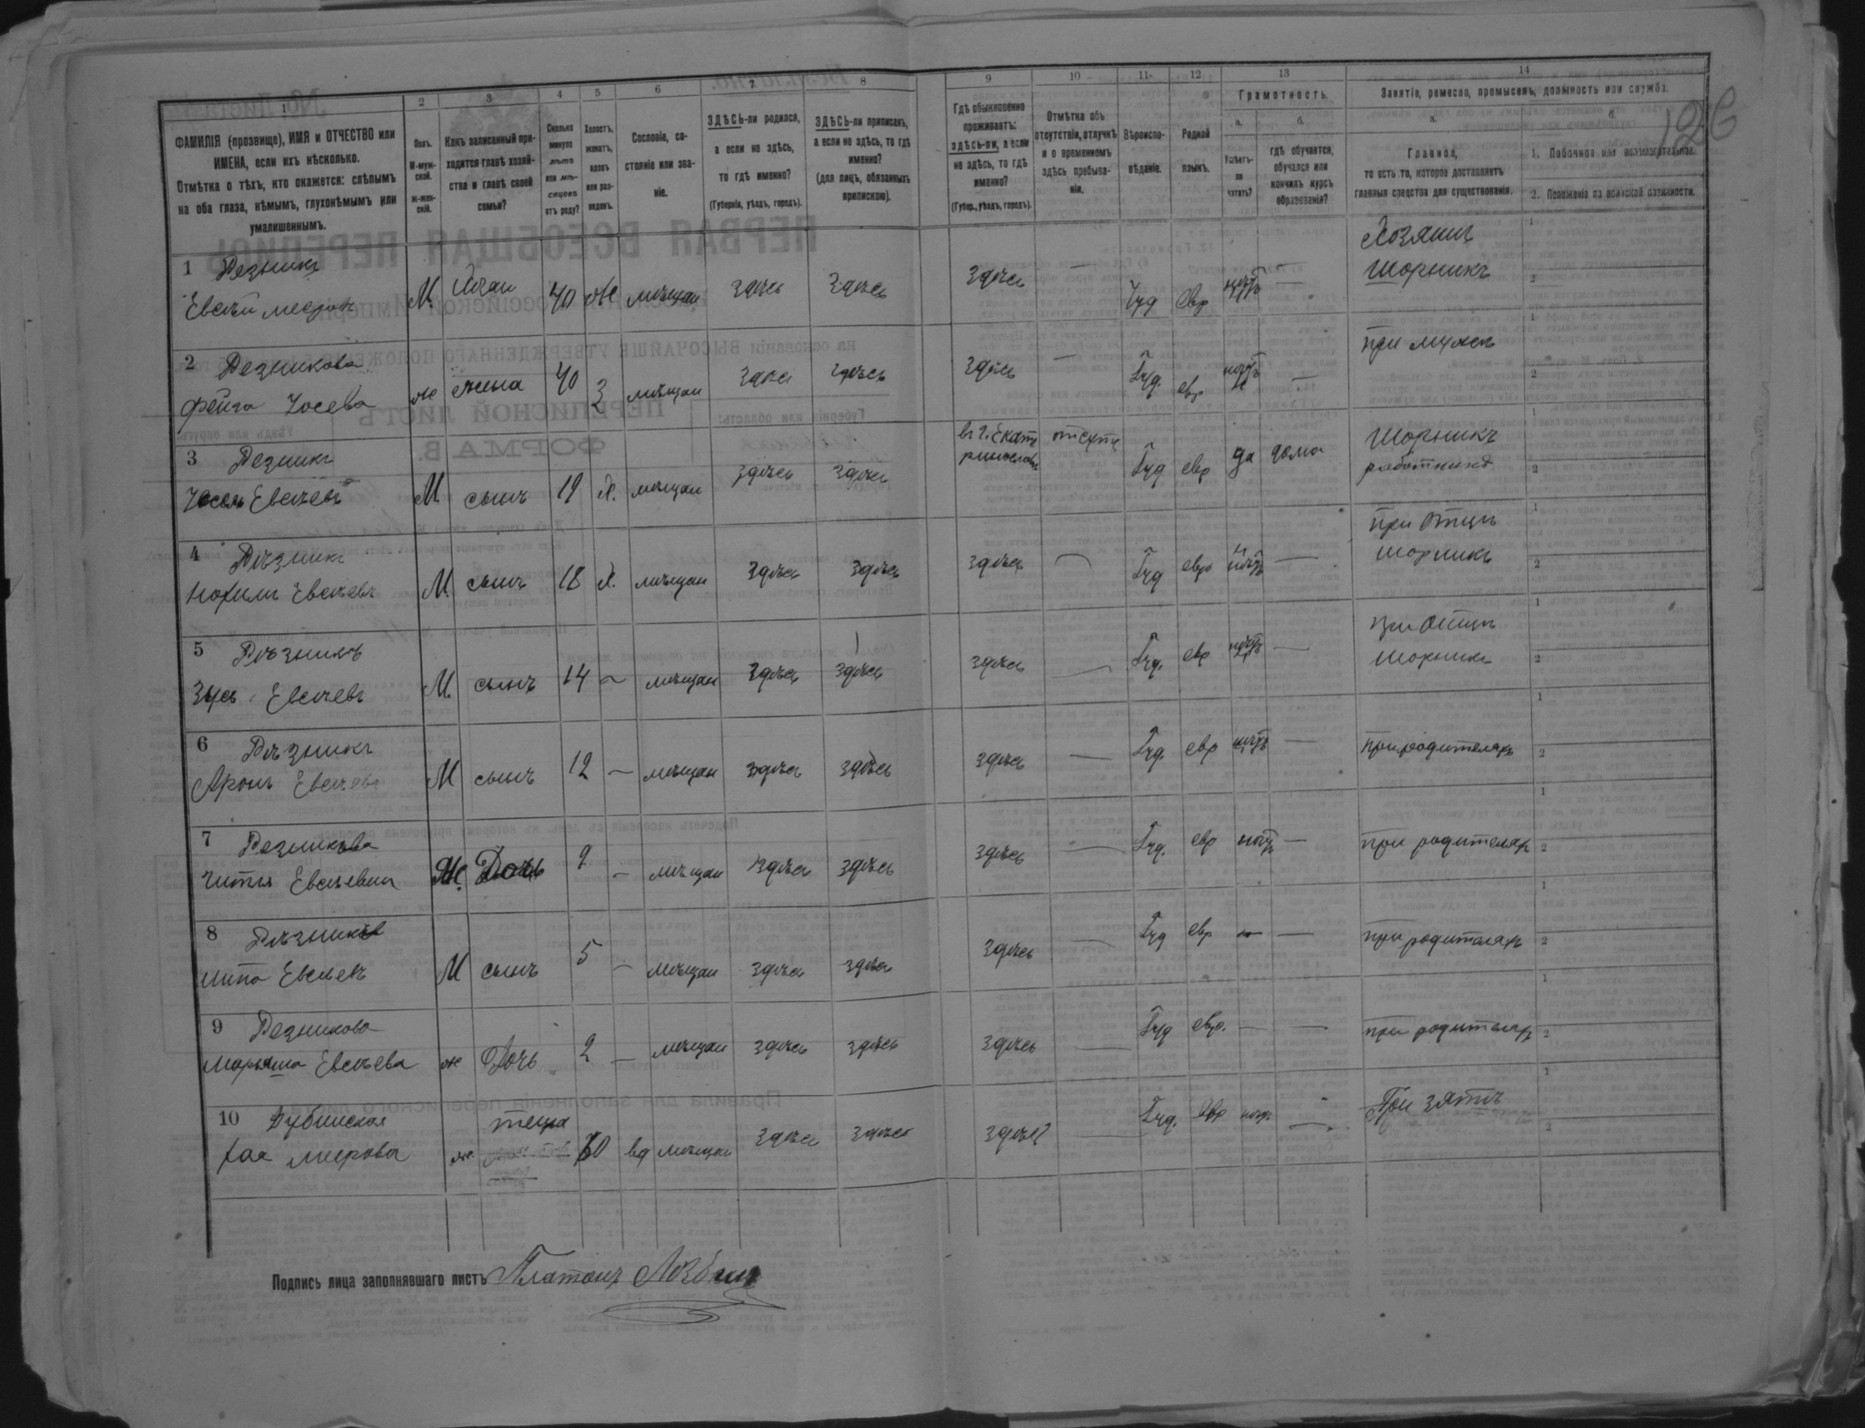 126
1 2 3 4 5 6 7 8 9 10 11 12 13 14
ФАМИЛІЯ (прозвище), ИМЯ и ОТЧЕСТВО или
ИМЕНА, если ихъ нѣсколько.
Отмѣтка о тѣхъ, кто окажется: слѣпымъ
на оба глаза, нѣмымъ, глухонѣмымъ или
умалишеннымъ.
Полъ.
М-муж-
ской.
Ж-жен-
скій.
Какъ записанный при-
ходится главѣ хозяй-
ства и главѣ своей
семьи?
Сколько
минуло
лѣтъ
или мѣ-
сяцевъ
отъ роду?
Холостъ,
женатъ,
вдовъ
или раз-
веденъ.
Сословіе, со-
стояніе или зва-
ніе.
ЗДѢСЬ-ли родился,
а если не здѣсь,
то гдѣ именно?
(Губернія, уѣздъ, городъ).
ЗДѢСЬ-ли приписанъ,
а если не здѣсь, то гдѣ
именно?
(для лицъ, обязанныхъ
припискою).
Гдѣ обыкновенно
проживаетъ:
здѣсь-ли, а если
не здѣсь, то гдѣ
именно?
(Губер., уѣздъ, городъ).
Отмѣтка объ
отсутствіи, отлучкѣ
и о временномъ
здѣсь пребыва-
ніи.
Вѣроиспо-
вѣданіе.
Родной
языкъ.
Грамотность.
а.
Умѣетъ-
ли
читать?
б.
гдѣ обучается,
обучался или
кончилъ курсъ
образованія?
Занятіе, ремесло, промыселъ, должность или служба.
а.
Главное,
то есть то, которое доставляетъ
главныя средства для существованія.
б.
1. Побочное или вспомогательное.
2. Положеніе по воинской повинности.
1 Резникъ
Евсѣй М 40 же мѣщан здѣсь здѣсь здѣсь — Іуд евр нѣтъ — Хозяинъ
Шорникъ
2 Резникова
Фейга Іосева же жена 40 З мѣщан здѣсь здѣсь здѣсь — Іуд. евр нѣтъ — при мужѣ
3 Резникъ
Іосель Евсѣевъ М сынъ 19 х. мѣщан здѣсь здѣсь Іуд евр да дома Шорникъ
4 Рѣзникъ
Евсѣевъ М сынъ 18 х. мѣщан здѣсь здѣсь здѣсь — Іуд евр нѣтъ — при Отцѣ
шорникъ
5 Рѣзникъ
Зусь Евсѣевъ М сынъ 14 — мѣщан здѣсь здѣсь здѣсь — Іуд. евр нѣтъ — при Отцѣ
шорникъ
6 Рѣзникъ
Аронъ Евсѣевъ М сынъ 12 — мѣщан здѣсь здѣсь здѣсь — Іуд. евр нѣтъ — при родителяхъ
7 Резникова
Евсѣевна Ж. Дочь 9 — мѣщан здѣсь здѣсь здѣсь — Іуд. евр нѣтъ — при родителях
8 Рѣзниковъ
Евсѣевъ М сынъ 5 — мѣщан здѣсь здѣсь здѣсь — Іуд евр — — при родителяхъ
9 Резникова
Марьяша Евсѣева же Дочь 2 — мѣщан здѣсь здѣсь здѣсь — Іуд евр. — — при родителях
10 Дубинская
Хая Меерова же теща 60 вд мѣщан здѣсь здѣсь здѣсь — Іуд. Евр нѣтъ — При зятѣ
Подпись лица заполнявшаго листъ Платонъ